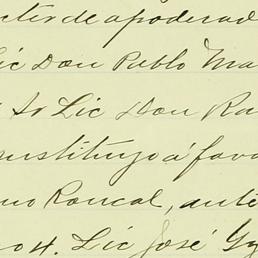 cter de apoderad
Lic Don Pablo Ma
Sr Lic Don Ra
nstituyo á favo
no Roncal, ante
04. Lic José Gy